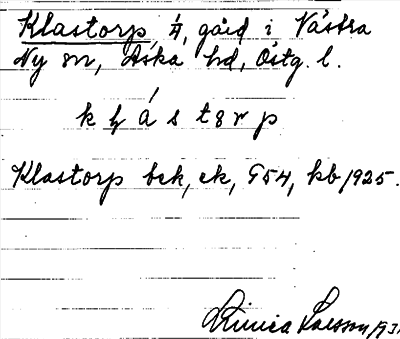 Klastorp, 4, gård i Västra
Ny sn, Aska hd, Östg. l.
Klastorp bek, ek, G54, kb 1925.
Larsson 193